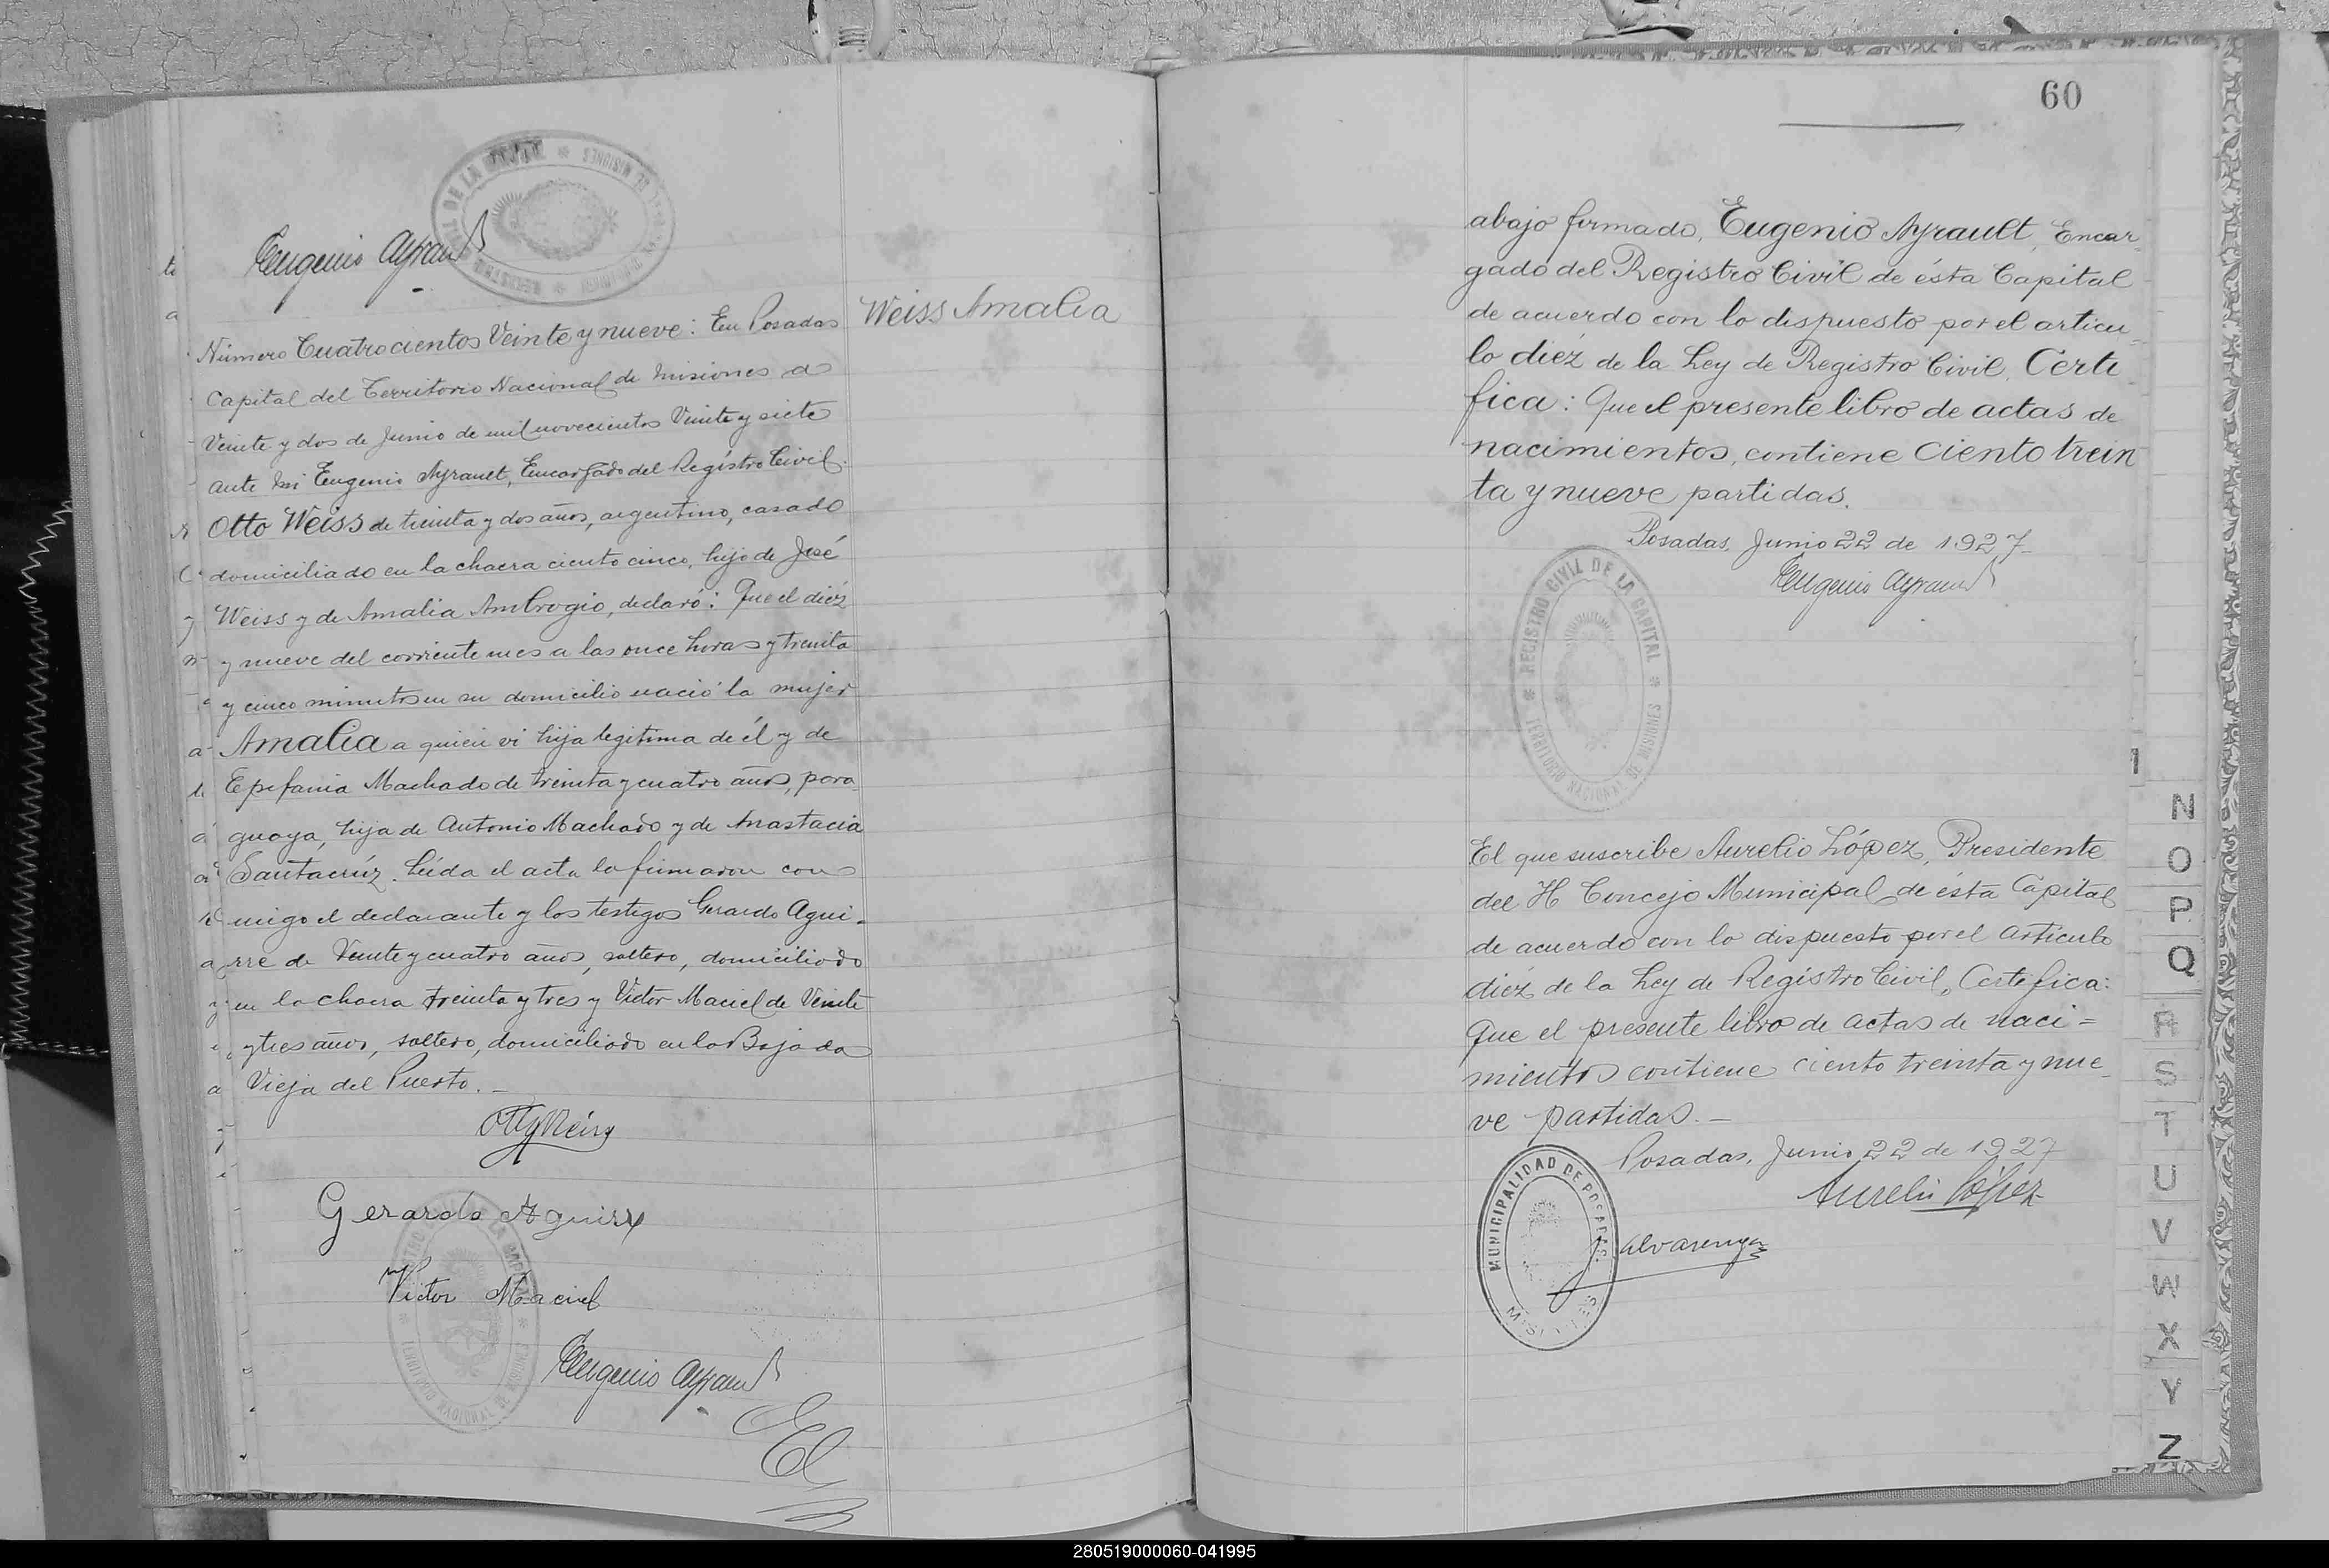 Eugenio Ayrault
REGISTRO CIVIL DE LA CAPITAL * TERRITORIO NACIONAL DE MISIONES *
Número Cuatrocientos Veinte y nueve: En Posadas
Weiss Amalia
Capital del Territorio Nacional de Misiones a
Veinte y dos de Junio de mil novecientos Veinte y siete
ante mi Eugenio Ayrault, Encargado del Registro Civil:
Otto Weiss de treinta y dos años, argentino, casado
domiciliado en la chacra ciento cinco, hijo de José
Weiss y de Amalia Ambrogio, declaró: Que el diéz
y nueve del corriente mes a las once horas y treinta
y cinco minutos en su domicilio nació la mujer
Amalia a quien vi hija legitima de él y de
Epifania Machado de treinta y cuatro años, para-
guaya, hija de Antonio Machado y de Anastacia
Santacrúz. Leida el acta la firmaron con
migo el declarante y los testigos Gerardo Agui-
rre de Veinte y cuatro años, soltero, domiciliado
en la chacra treinta y tres y Victor Maciel de Veinte
y tres años, soltero, domiciliado en la Bajada
Vieja del Puerto.—
Otto Weiss
Gerardo Aguirre
Victor Maciel
Eugenio Ayrault
REGISTRO CIVIL DE LA CAPITAL * TERRITORIO NACIONAL DE MISIONES *
El
60
abajo firmado, Eugenio Ayrault, Encar-
gado del Registro Civil de ésta Capital
de acuerdo con lo dispuesto por el articu-
lo diéz de la Ley de Registro Civil, Certi
fica: Que el presente libro de actas de
nacimientos, contiene ciento trein
ta y nueve partidas.
Posadas, Junio 22 de 1927-
Eugenio Ayrault
REGISTRO CIVIL DE LA CAPITAL * TERRITORIO NACIONAL DE MISIONES *
El que suscribe Aurelio López, Presidente
del H Concejo Municipal de ésta Capital
de acuerdo con lo dispuesto por el articulo
diéz de la Ley de Registro Civil, Certifica:
Que el presente libro de actas de naci=
mientos contiene ciento treinta y nue-
ve partidas.—
Posadas, Junio 22 de 1927
Aurelio López
MUNICIPALIDAD DE POSADAS MISIONES
J Alvarenga
N
O
P
Q
R
S
T
U
V
W
X
Y
Z
280519000060-041995